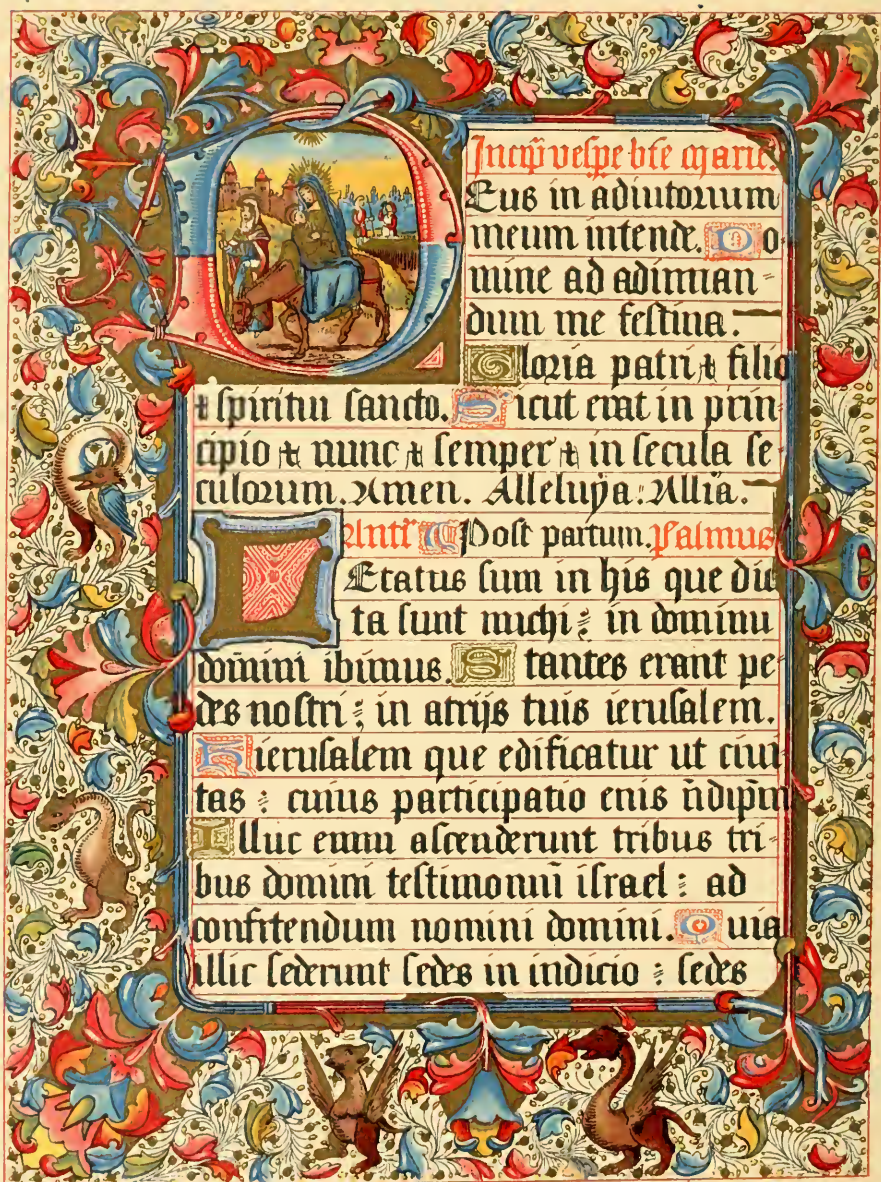 Incip vespe bte marie
DEus in adiutorium
meum intende. Do
mine ad adiuuan
dum me festina.
Gloria patri & filio
& spiritui sancto. Sicut erat in prin
cipio & nunc & semper & in secula se
culorum. Amen. Alleluya. Allia.
Ant Post partum. Psalmus
LEtatus sum in his que dic
ta sunt michi: in domum
domini ibimus. Stantes erant pe
des nostri: in atrijs tuis ierusalem.
Hierusalem que edificatur ut ciui
tas: cuius participatio eius
Illuc enim ascenderunt tribus tri
bus domini testimoniũ israel: ad
confitendum nomini domini. Quia
illic sederunt sedes in iudicio: sedes